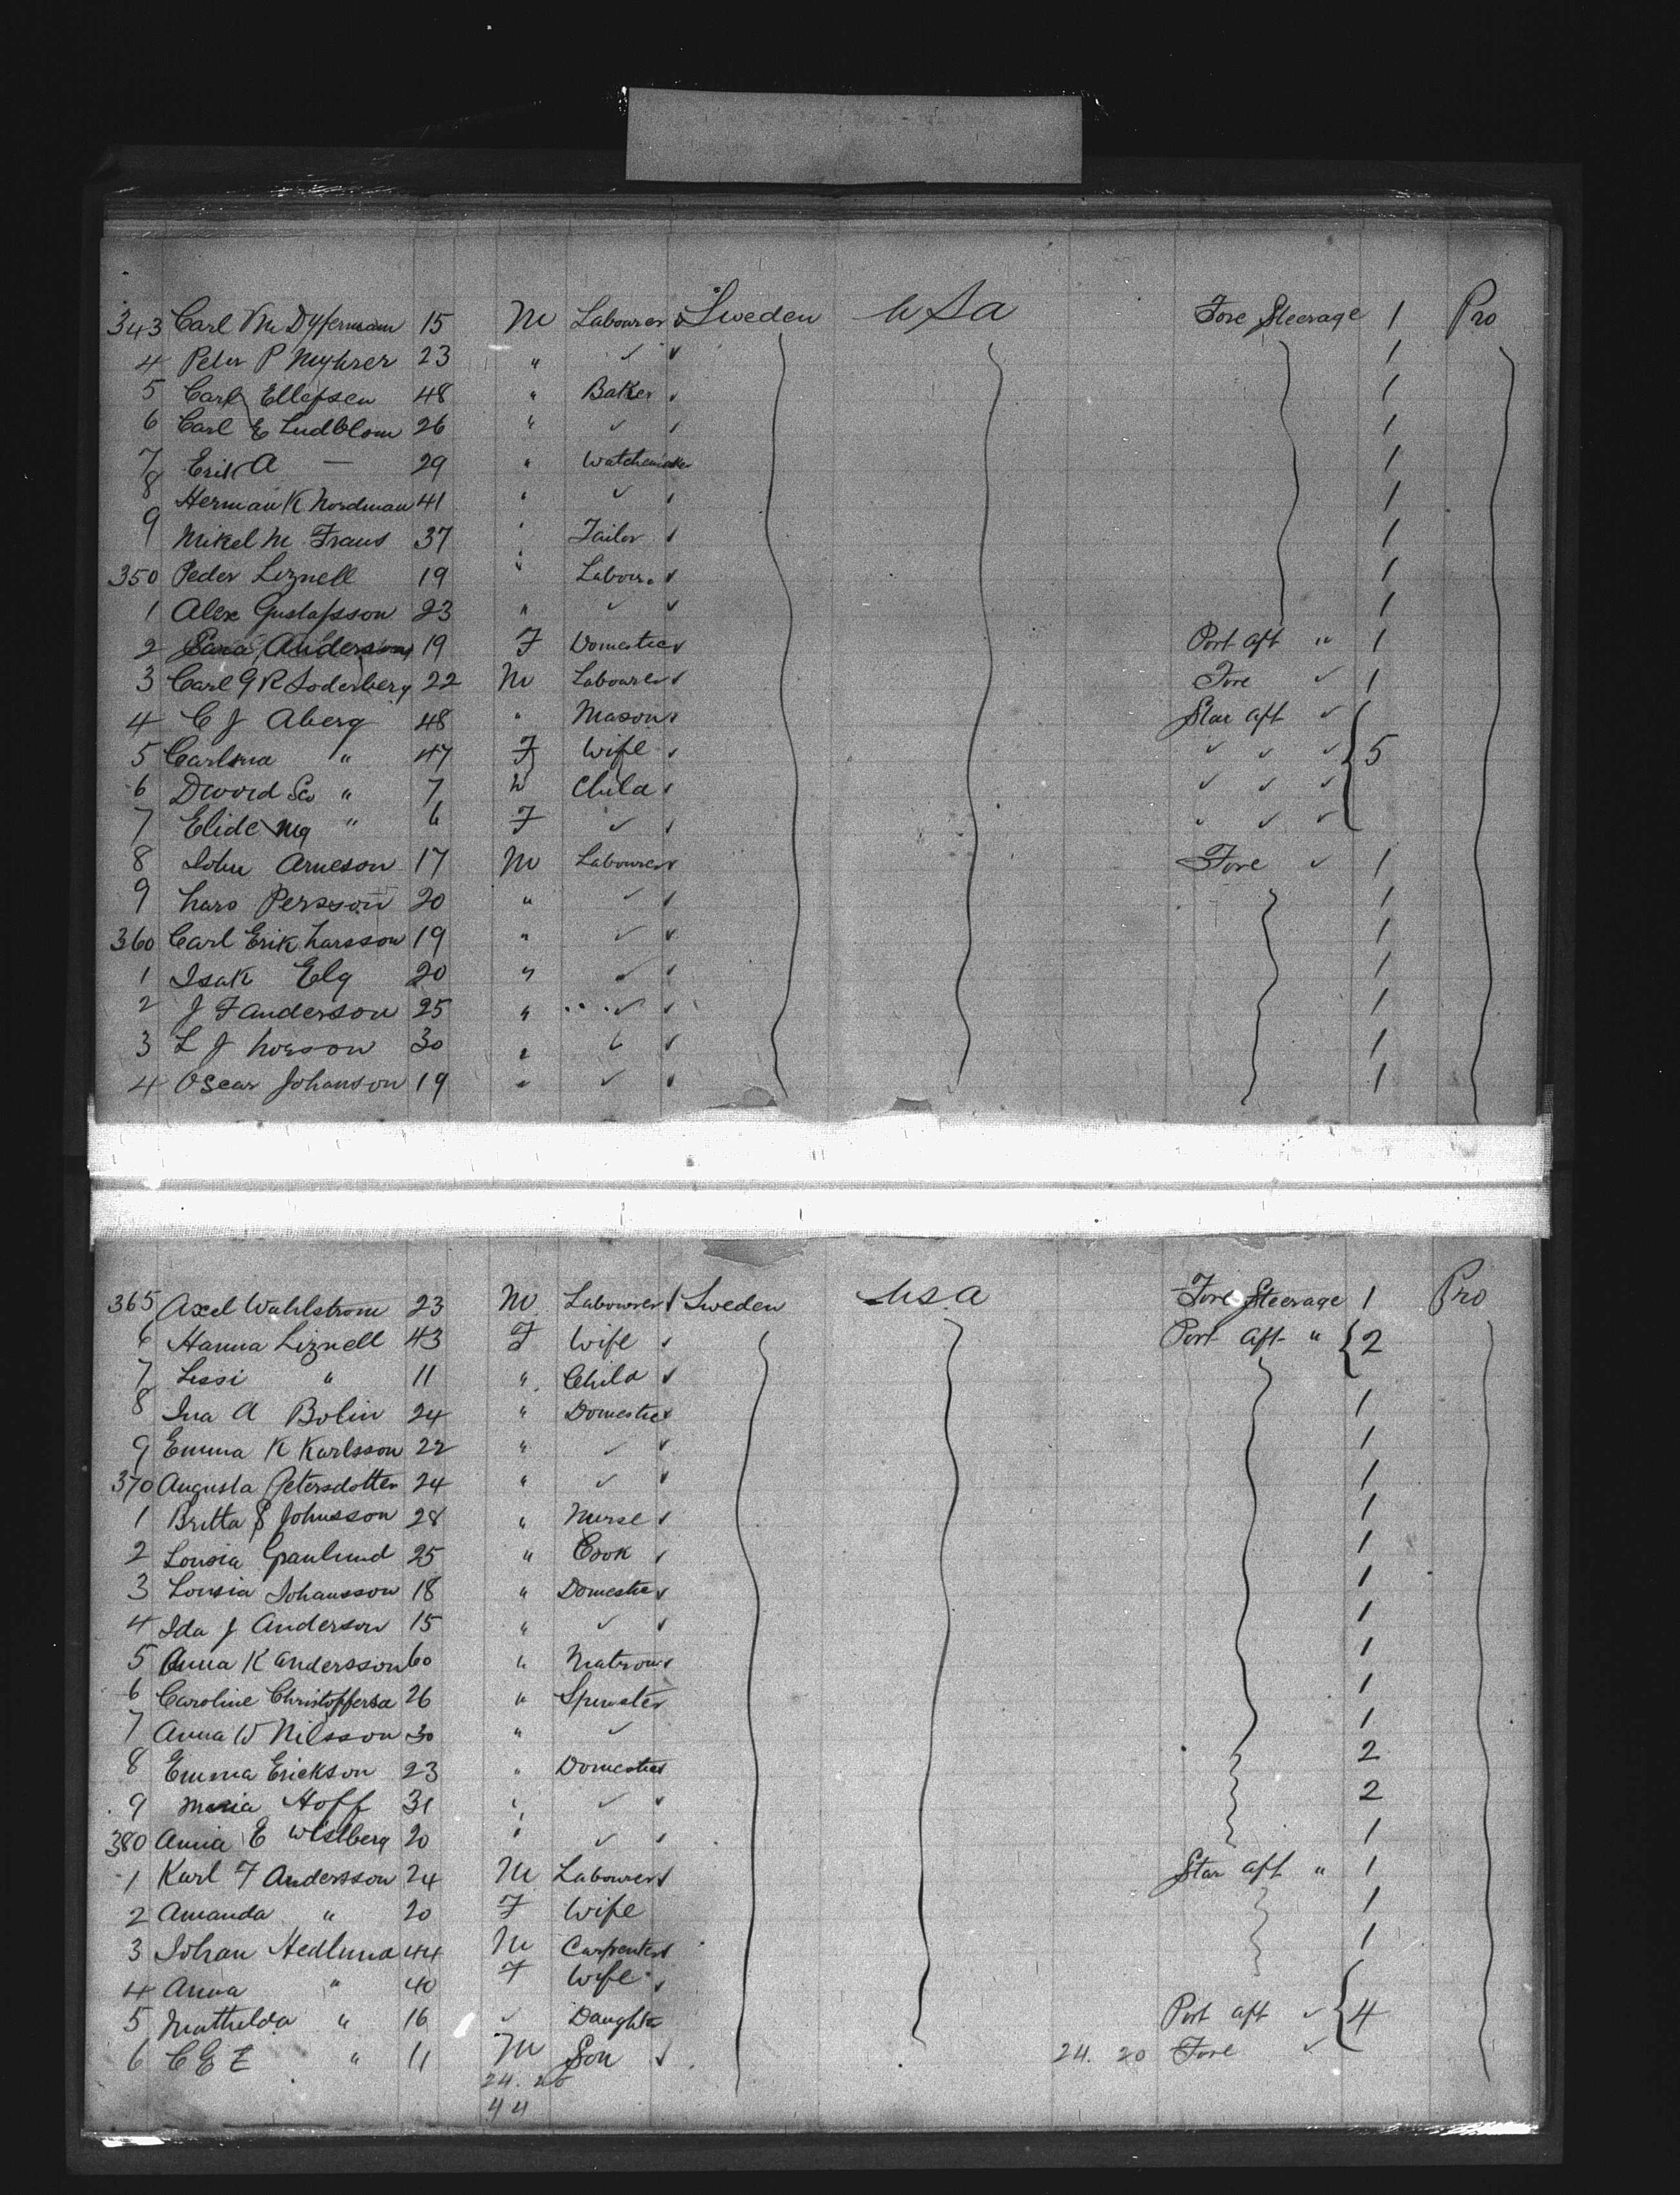 343 Carl Vm Dyfermam 15 M Labourer ✓ Sweden USa Fore Steerage 1 Pro
4 Peter P Nyhrer 23 " ✓ ✓ 1
5 Carl Ellefsen 48 " Baker ✓ 1
6 Carl E Ludblom 26 " ✓ ✓ 1
7 Erik A — 29 " Watchemaker 1
8 Herman K Nordman 41 " ✓ ✓ 1
9 Mikel M Fraus 37 " Tailor ✓ 1
350 Peder Liznell 19 " Labour. ✓ 1
1 Alex Gustafsson 23 " ✓ ✓ 1
2 Anderson 19 F Domestic ✓ Port aft " 1
3 Carl G R Soderberg 22 M Labourer ✓ Fore ✓ 1
4 C J Aberg 48 " Mason ✓ Star aft ✓
5 Carlsma " 47 F Wife ✓ ✓ ✓ ✓ 5
6 " 7 Child ✓ ✓ ✓ ✓
7 Elide " 6 F ✓ ✓ ✓ ✓ ✓
8 John Arneson 17 M Labourer ✓ Fore ✓ 1
9 Lars Persson 20 " ✓ ✓ 1
360 Carl Erik Larsson 19 " ✓ ✓ 1
1 Isak Elg 20 " ✓ ✓ 1
2 J F Anderson 25 " ✓ ✓ 1
3 L J 30 " ✓ ✓ 1
4 Oscar Johanson 19 " ✓ ✓ 1
365 Axel Wahlstrom 23 M Labourer ✓ Sweden USA Fore Steerage 1 Pro
6 Hanna Liznell 43 F Wife ✓ Port aft " 2
7 Lissi " 11 " Child ✓
8 Ina A Bolin 24 " Domestic ✓ 1
9 Emma K Karlsson 22 " ✓ ✓ 1
370 Augusta Petersdotter 24 " ✓ ✓ 1
1 Britta S Johnsson 28 " Nurse ✓ 1
2 Lousia Granlund 25 " Cook ✓ 1
3 Lousia Johansson 18 " Domestic ✓ 1
4 Ida J Anderson 15 " ✓ ✓ 1
5 Anna K Andersson 60 " Matron ✓ 1
6 Caroline Christoffersa 26 " Spinster 1
7 Anna W Nilsson 30 " ✓ 1
8 Emma Erickson 23 " Domestic ✓ 2
9 Maria Hoff 31 " ✓ ✓ 2
380 Anna E Wistberg 20 " ✓ ✓ 1
1 Karl F Andersson 24 M Labourer ✓ Star aft " 1
2 Amanda " 20 F Wife 1
3 Johan Hedlund 44 M Carpenter ✓ 1
4 Anna " 40 F Wife ✓
5 Mathilda " 16 ✓ Daughte Port aft ✓ 4
6 C E E " 11 M Son ✓ 24. 20 Fore ✓
24. 20
44